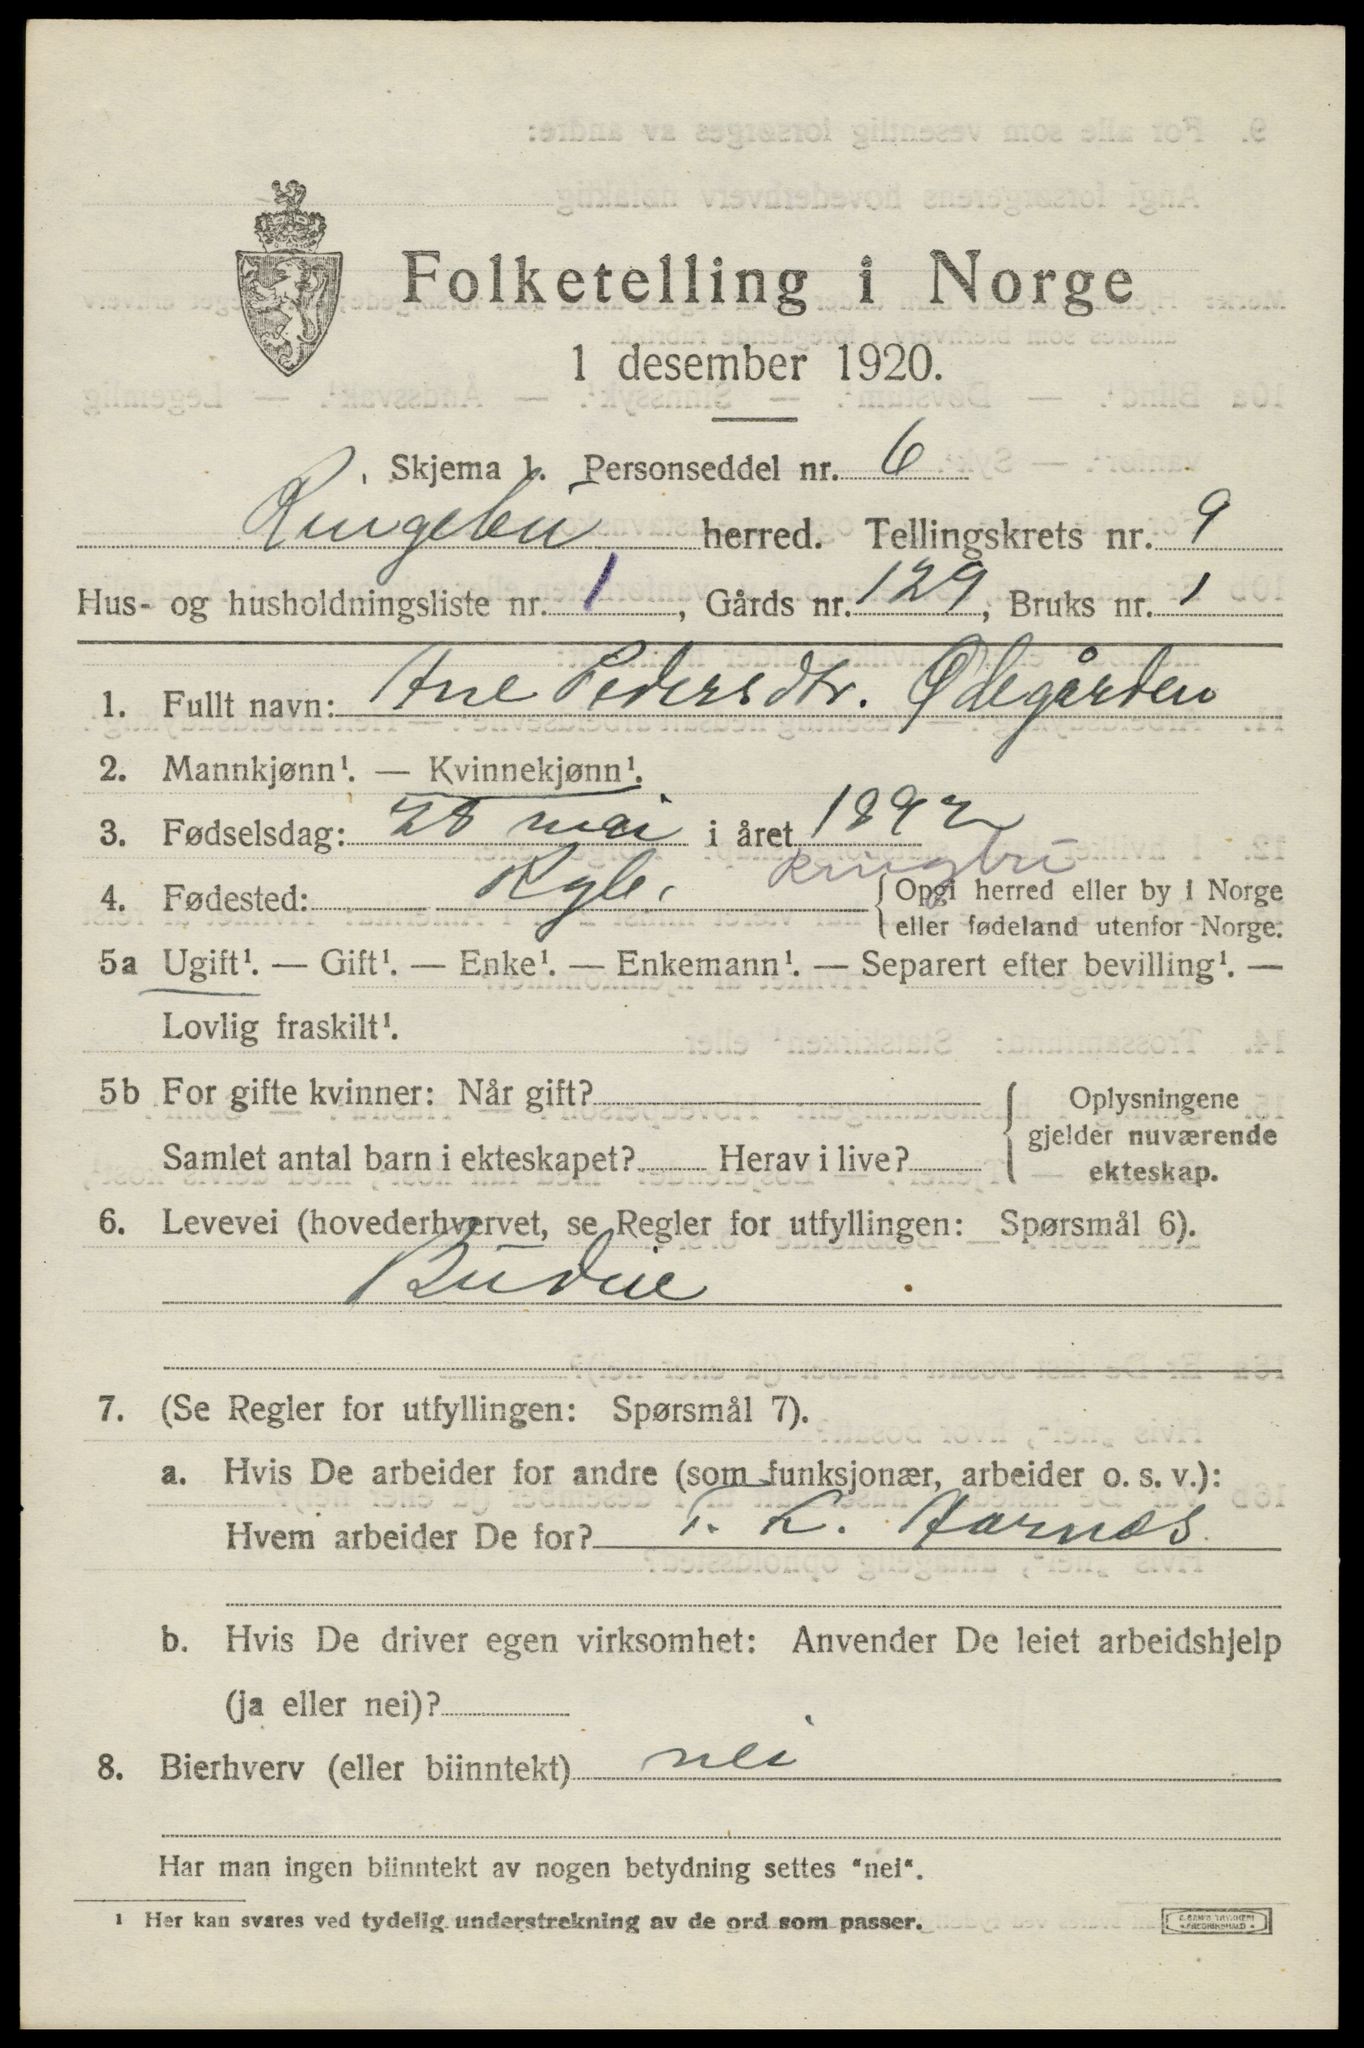 Folketelling i Norge
1 desember 1920.
Skjema 1. Personseddel nr. 6
Ringebu herred. Tellingskrets nr. 9
Hus- og husholdningsliste nr. 1, Gårds nr. 129, Bruks nr. 1
1. Fullt navn: Ane Pedersdtr. Ødegården
2. Mannkjønn¹. — Kvinnekjønn¹.
3. Fødselsdag: 28 mai i året 1892
Ringebu
4. Fødested: Rgb. { Opgi herred eller by i Norge
eller fødeland utenfor Norge.
5a Ugift¹. — Gift¹. — Enke¹. — Enkemann¹. — Separert efter bevilling¹. —
Lovlig fraskilt¹.
5b For gifte kvinner: Når gift?
Samlet antal barn i ekteskapet? Herav i live?
{ Oplysningene
gjelder nuværende
ekteskap.
6. Levevei (hovederhvervet, se Regler for utfyllingen: Spørsmål 6).
Budeie
7. (Se Regler for utfyllingen: Spørsmål 7).
a. Hvis De arbeider for andre (som funksjonær, arbeider o. s. v.):
Hvem arbeider De for? T. K. Aarnes
b. Hvis De driver egen virksomhet: Anvender De leiet arbeidshjelp
(ja eller nei)?
8. Bierhverv (eller biinntekt) nei
Har man ingen biinntekt av nogen betydning settes "nei".
¹ Her kan svares ved tydelig understrekning av de ord som passer.